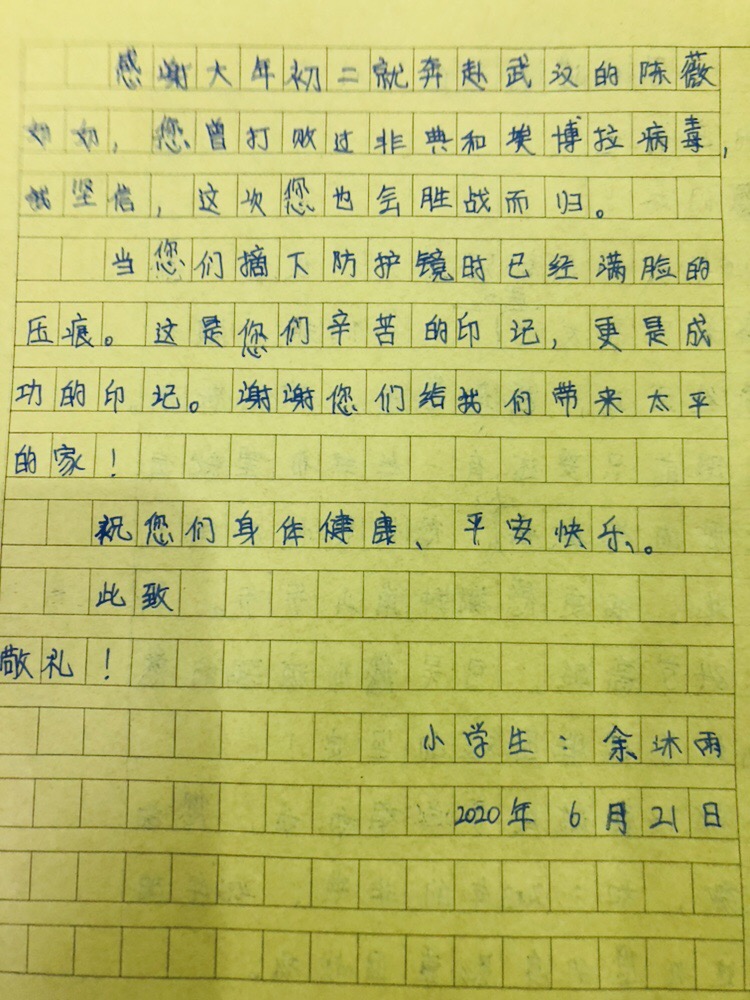 感谢大年初二就奔赴武汉的陈薇
奶奶，您曾打败过非典和埃博拉病毒，
我坚信，这次您也会胜战而归。
当您们摘下防护镜时已经满脸的
压痕。这是您们辛苦的印记，更是成
功的印记。谢谢您们给我们带来太平
的家！
祝您们身体健康、平安快乐。
此致
敬礼！
小学生：余沐雨
2020年6月21日